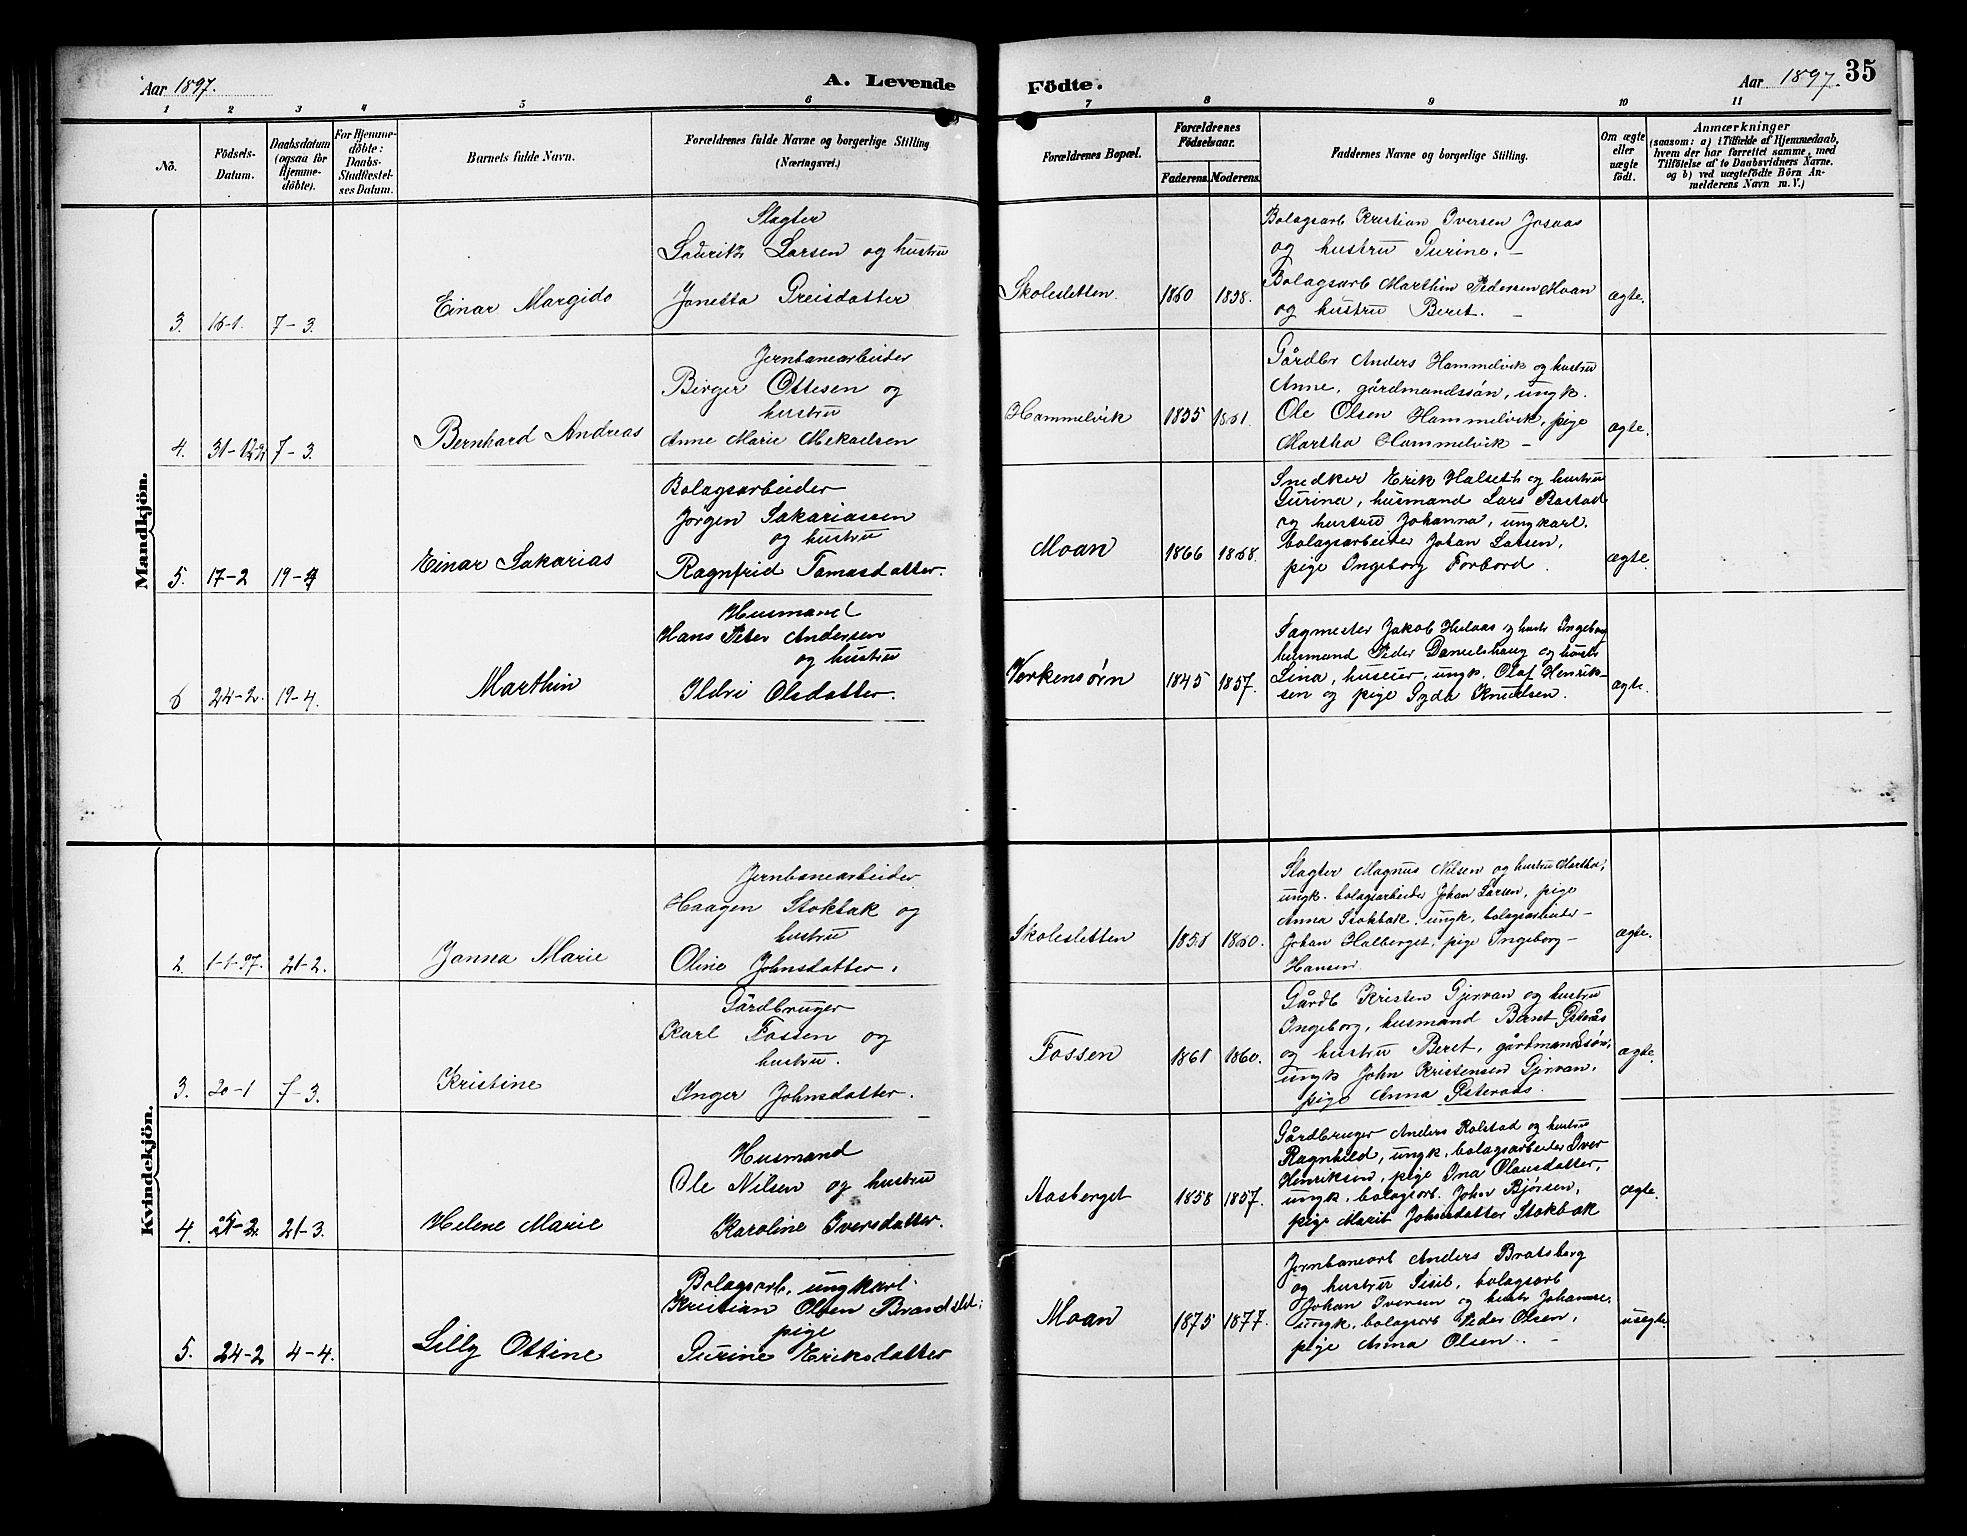 Aar 1897.
A. Levende
1 2 3 4 5 6
No.
Födsels-
Datum.
Daabsdatum
(ogsaa for
Hjemme-
döbte).
For Hjemme-
döbte:
Daabs-
Stadfæstel-
ses Datum.
Barnets fulde Navn.
Forældrenes fulde Navne og borgerlige Stilling
(Næringsvei.)
Mandkjön.
Slagter
Lauritz Larsen og hustru
Janetta Greisdatter
3. 16-1. 7-3. Einar Margido
Jernbanearbeider
Birger Ottesen og
hustru
Anne Marie Mekaelsen
4. 31-12 7-3. Bernhard Andreas
Bolagsarbeider
Jörgen Sakariassen
og hustru
Ragnfrid Tomasdatter.
5. 17-2 19-4 Einar Sakarias
Husmand
Hans Peter Andersen
og hustru
Ildri Olsdatter.
6 24-2. 19-4. Marthin
Kvindekjön.
Jernbanearbeider
Haagen Stokbak og
hustru
Oline Johnsdatter.
2. 1-1-97. 21-2. Janna Marie
Gårdbruger
Karl Fossen og
hustru.
Inger Johnsdatter.
3. 20-1 7-3. Kristine
Husmand
Ole Nilsen og hustru
Karoline Iversdatter.
4. 21-3. Helene Marie
Bolagsarb. ungkarl
Kristian Olsen
pige
Gurine Eriksdatter
5. 24-2 4-4. Lilly Ottine
Födte.
Aar 1897.
35
7 8 9 10 11
Forældrenes Bopæl.
Forældrenes
Födselsaar.
Faderens. Moderens.
Faddernes Navne og borgerlige Stilling.
Om ægte
eller
uægte
födt.
Anmærkninger
(saasom: a) i Tilfælde af Hjemmedaab,
hvem der har forrettet samme, med
Tilföielse af to Daabsvidners Navne.
og b) ved uægtefödte Börn An-
melderens Navn m. V.)
Bolagsarb Kristian Iversen Josaas
og hustru Gurine. -
Bolagsarb Marthin Pedersen Moan
og hustru Beret. -
Skolesletten. 1860 ægte.
Gårdbr Anders Hammelvik og hustru
Anne, gårdmandssön, ungk.
Ole Olsen Hammelvik, pige
Martha Hammelvik -
Hammelvik ægte.
Snedker Erik Halseth og hustru
Gurina, husmand Lars Rastad
og hustru Johanna, ungkarl.
bolagsarbeider Johan Larsen,
pige Ingeborg Forbord.
Moan 1866 1868. ægte.
Fagmester Jakob Hulaas og hustr Ingeborg
husmand Peder Danielshaug og hustr
Lina, huseier, ungk. Olaf Henrik-
sen og pige Gyda Knudsen.
Verkensörn 1845 1857. ægte.
Slagter Magnus Nilsen og hustru Martha,
ungk. bolagsarbeider Johan Larsen, pige
Anna Stokbak, ungk, bolagsarbeider
Johan Halberget, pige Ingeborg
Hansen
Skolesletten 1860. ægte.
Gårdb Kristen Gjervan og hustru
Ingeborg, husmand Bernt Österås
og hustru Beret, gårdmandssön,
ungk John Kristensen Gjervan,
pige Anna Österaas.
Fossen 1861 1860. ægte.
Gårdbruger Anders Rolstad og hustru
Ragnhild, ungk, bolagsarbeider Iver
Henriksen, pige Ina Olausdatter,
ungk, bolagsarb. John Bjørsen,
pige Marit Johnsdatter Stokbak
Aasberget 1858 1857. ægte.
Jernbanearb Anders Bratsberg
og hustru Sisil, bolagsarb
Johan Iversen og hustr Johanne.
ungk, bolagsarb Peder Olsen,
pige Anna Olsen. -
Moan 1875 1877. uægte